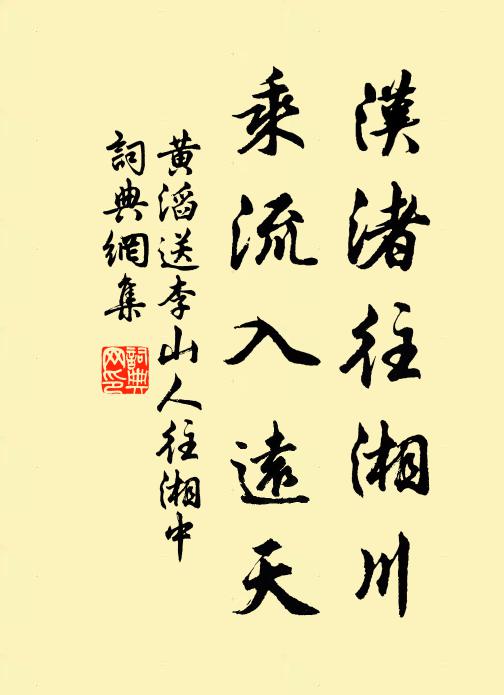 漢渚往湘川
乘流入遠天
黃滔送李山人往湘中
詞典網集
詞典
网印